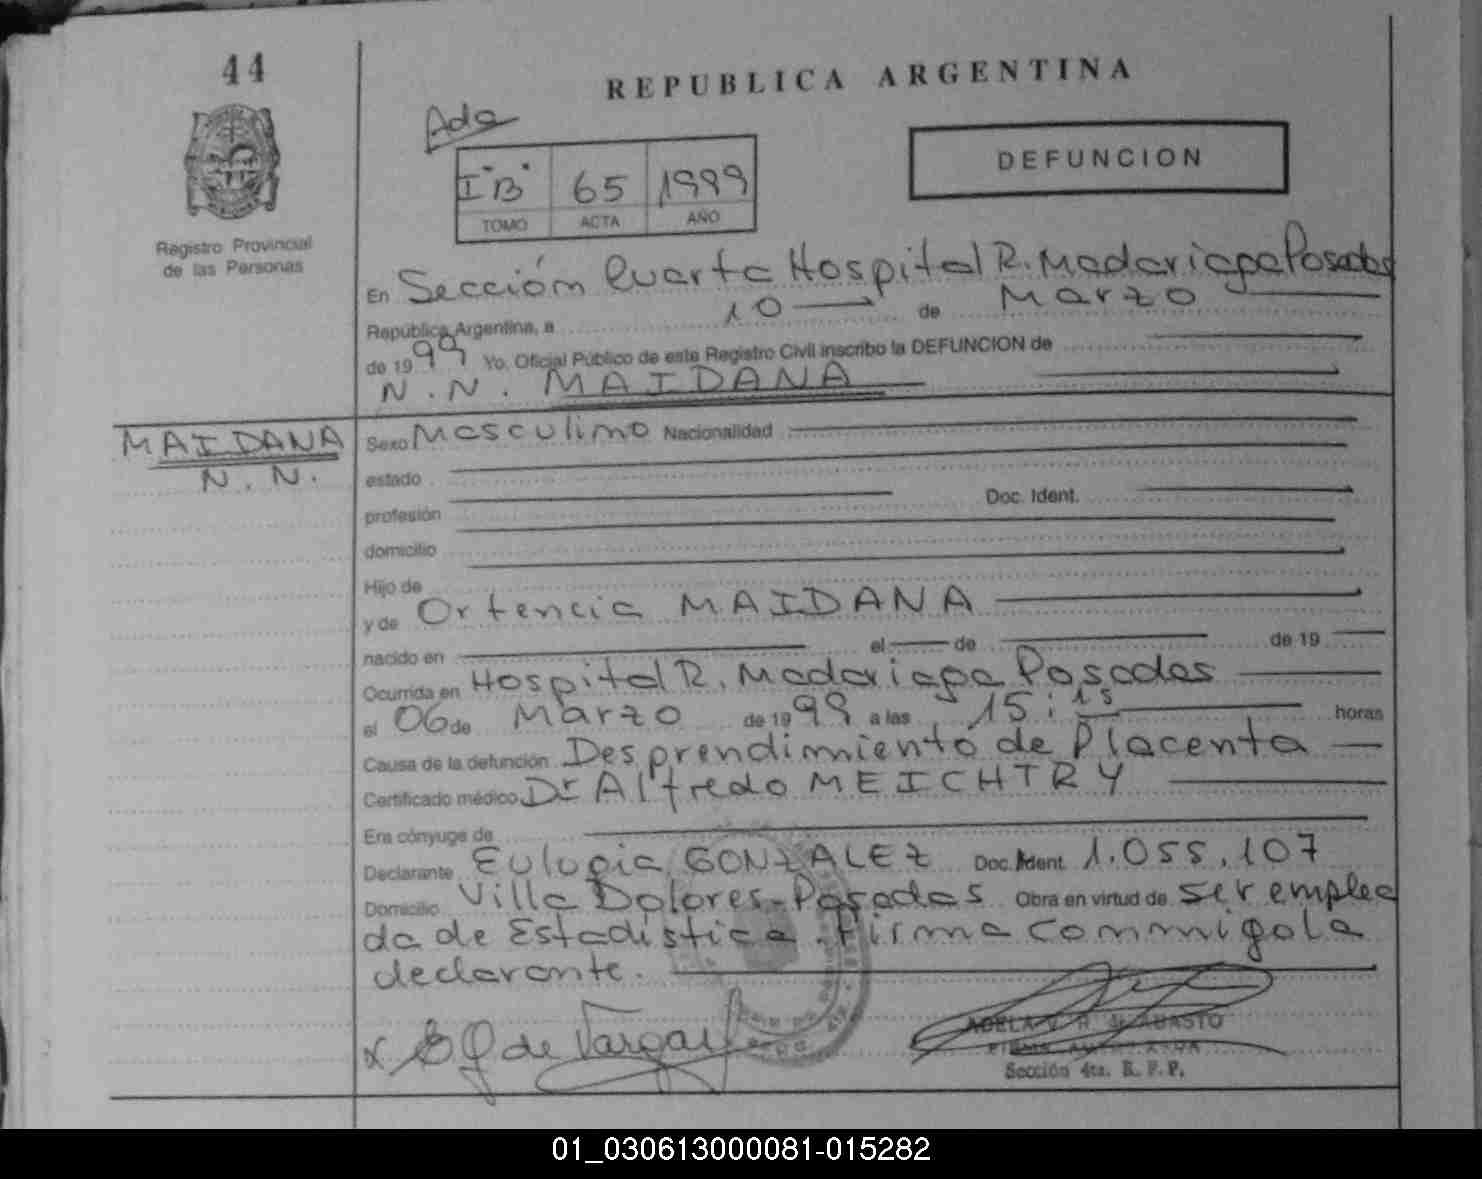 44
REPUBLICA ARGENTINA
Ada
I "B" 65 1999
TOMO ACTA AÑO
DEFUNCION
Registro Provincial
de las Personas
En Sección Cuarta Hospital R. Madariaga Posadas
República Argentina, a 10 de Marzo
de 1999 Yo. Oficial Público de este Registro Civil inscribo la DEFUNCION de
N. N. MAIDANA
MAIDANA
N. N.
Sexo Masculino Nacionalidad
estado
profesión Doc. Ident.
domicilio
Hijo de
y de Ortencia MAIDANA
nacido en el de de 19
Ocurrida en Hospital R. Madariaga Posadas
el 06 de Marzo de 1999 a las 15:15 horas
Causa de la defunción Desprendimiento de Placenta
Certificado médico Dr Alfredo MEICHTRY
Era cónyuge de
Declarante Eulogia GONZALEZ Doc. Ident. 1.055.107
Domicilio Villa Dolores-Posadas Obra en virtud de ser emplea
da de Estadistica. Firma Commigo la
declarante.
x E G de Vargas
ADELA V. R.
Sección 4ta. R. P. P.
01_030613000081-015282